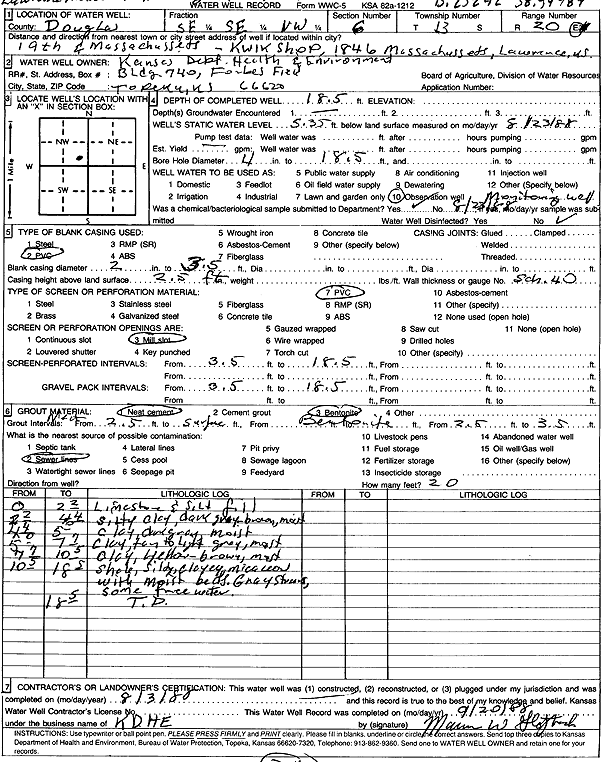 WATER WELL RECORD Form WWC-5 KSA 82a-1212
1 LOCATION OF WATER WELL: Fraction Section Number Township Number Range Number
County: Douglas SE ¼ SE ¼ NW ¼ 6 T 13 S R 20 E
Distance and direction from nearest town or city street address of well if located within city?
19th & Massachussets - KWIK Shop, 1846 Massachussets, Lawrence, KS
2 WATER WELL OWNER: Kansas Dept. Health & Environment
RR#, St. Address, Box #: Bldg 740, Forbes Field Board of Agriculture, Division of Water Resources
City, State, ZIP Code: Topeka, KS 66620 Application Number:
3 LOCATE WELL'S LOCATION WITH AN "X" IN SECTION BOX:
4 DEPTH OF COMPLETED WELL 18.5 ft. ELEVATION:
Depth(s) Groundwater Encountered 1. ft. 2. ft. 3. ft.
WELL'S STATIC WATER LEVEL 5.35 ft. below land surface measured on mo/day/yr 8/23/88
Pump test data: Well water was ft. after hours pumping gpm
Est. Yield gpm: Well water was ft. after hours pumping gpm
Bore Hole Diameter 4 in. to 18.5 ft., and in. to ft.
WELL WATER TO BE USED AS: 5 Public water supply 8 Air conditioning 11 Injection well
1 Domestic 3 Feedlot 6 Oil field water supply 9 Dewatering 12 Other (Specify below)
2 Irrigation 4 Industrial 7 Lawn and garden only 10 Observation well Monitoring well
Was a chemical/bacteriological sample submitted to Department? Yes No ; If yes, mo/day/yr sample was submitted Water Well Disinfected? Yes No
N
NW NE
W E
SW SE
S
1 Mile
5 TYPE OF BLANK CASING USED: 5 Wrought iron 8 Concrete tile CASING JOINTS: Glued Clamped
1 Steel 3 RMP (SR) 6 Asbestos-Cement 9 Other (specify below) Welded
2 PVC 4 ABS 7 Fiberglass Threaded
Blank casing diameter 2 in. to 3.5 ft., Dia in. to ft., Dia in. to ft.
Casing height above land surface 2.5 ft. weight lbs./ft. Wall thickness or gauge No. Sch. 40
TYPE OF SCREEN OR PERFORATION MATERIAL: 7 PVC 10 Asbestos-cement
1 Steel 3 Stainless steel 5 Fiberglass 8 RMP (SR) 11 Other (specify)
2 Brass 4 Galvanized steel 6 Concrete tile 9 ABS 12 None used (open hole)
SCREEN OR PERFORATION OPENINGS ARE: 5 Gauzed wrapped 8 Saw cut 11 None (open hole)
1 Continuous slot 3 Mill slot 6 Wire wrapped 9 Drilled holes
2 Louvered shutter 4 Key punched 7 Torch cut 10 Other (specify)
SCREEN-PERFORATED INTERVALS: From 3.5 ft. to 18.5 ft., From ft. to ft.
From ft. to ft., From ft. to ft.
GRAVEL PACK INTERVALS: From 3.5 ft. to 18.5 ft., From ft. to ft.
From ft. to ft., From ft. to ft.
6 GROUT MATERIAL: 1 Neat cement 2 Cement grout 3 Bentonite 4 Other
Grout Intervals: From 2.5 ft. to Surface ft., From Bentonite ft. to ft., From 2.5 ft. to 3.5 ft.
What is the nearest source of possible contamination: 10 Livestock pens 14 Abandoned water well
1 Septic tank 4 Lateral lines 7 Pit privy 11 Fuel storage 15 Oil well/Gas well
2 Sewer lines 5 Cess pool 8 Sewage lagoon 12 Fertilizer storage 16 Other (specify below)
3 Watertight sewer lines 6 Seepage pit 9 Feedyard 13 Insecticide storage
Direction from well? How many feet? 20
FROM TO LITHOLOGIC LOG FROM TO LITHOLOGIC LOG
0 Limestone & silt fill
Silty clay, dark gray brown, moist
Clay, dark gray, moist
Clay, tan to light gray, moist
Clay, yellow-brown, moist
Shale, silty, clayey, micaceous
with moist beds. Gray Streaks,
some free water.
18.5 T.D.
7 CONTRACTOR'S OR LANDOWNER'S CERTIFICATION: This water well was (1) constructed, (2) reconstructed, or (3) plugged under my jurisdiction and was
completed on (mo/day/year) 8/3/88 and this record is true to the best of my knowledge and belief. Kansas
Water Well Contractor's License No. This Water Well Record was completed on (mo/day/yr) 9/20/88
under the business name of KDHE by (signature)
INSTRUCTIONS: Use typewriter or ball point pen. PLEASE PRESS FIRMLY and PRINT clearly. Please fill in blanks, underline or circle the correct answers. Send top three copies to Kansas
Department of Health and Environment, Bureau of Water Protection, Topeka, Kansas 66620-7320, Telephone: 913-862-9360. Send one to WATER WELL OWNER and retain one for your
records.